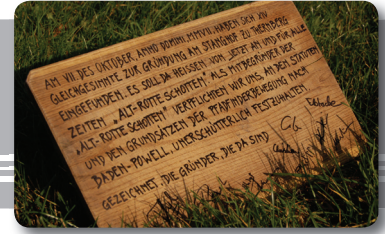 AM VII DES OKTOBER, ANNO DOMINI MMVII, HABEN SICH XIV
GLEICHGESINNTE ZUR GRÜNDUNG AM STANGHOF ZU THERNBERG
EINGEFUNDEN. ES SOLL DA HEISSEN VON JETZT AN UND FÜR ALLE
ZEITEN „ALT-ROTTE SCHOTTEN“ ALS MITBEGRÜNDER DER
„ALT-ROTTE SCHOTTEN“ VERPFLICHTEN WIR UNS, AN DEN STATUTEN
UND DEN GRUNDSÄTZEN DER PFADFINDERBEWEGUNG NACH
BADEN-POWELL, UNERSCHÜTTERLICH FESTZUHALTEN.
GEZEICHNET, DIE GRÜNDER, DIE DA SIND